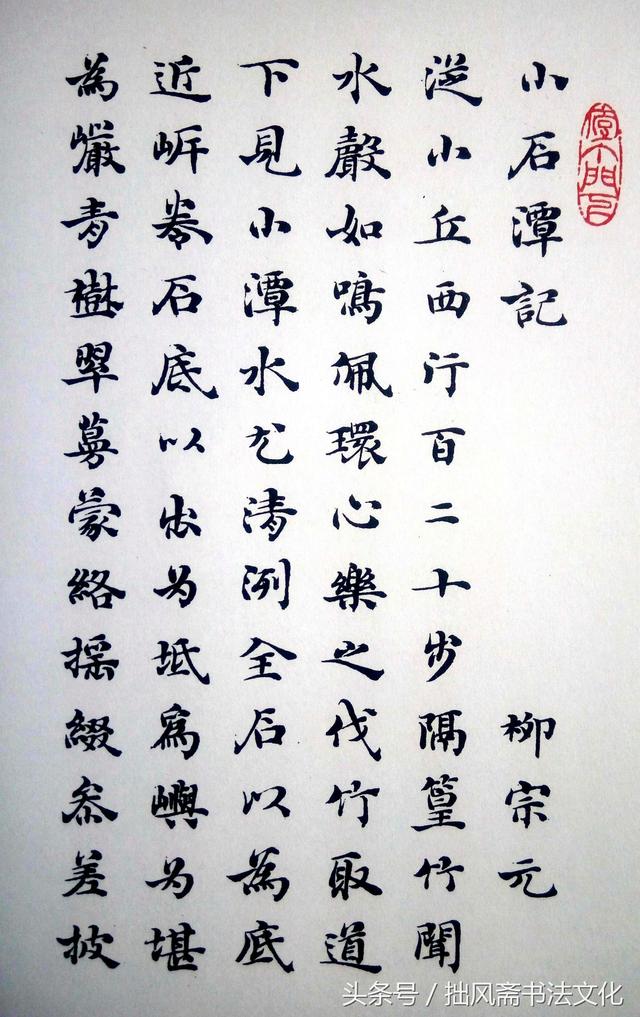 小石潭記 柳宗元
從小丘西行百二十步隔篁竹聞
水聲如鳴佩環心樂之伐竹取道
下見小潭水尤清洌全石以為底
近岸卷石底以出为坻為嶼为堪
為巖青樹翠蔓蒙絡搖綴参差披
头条号／拙风斋书法文化